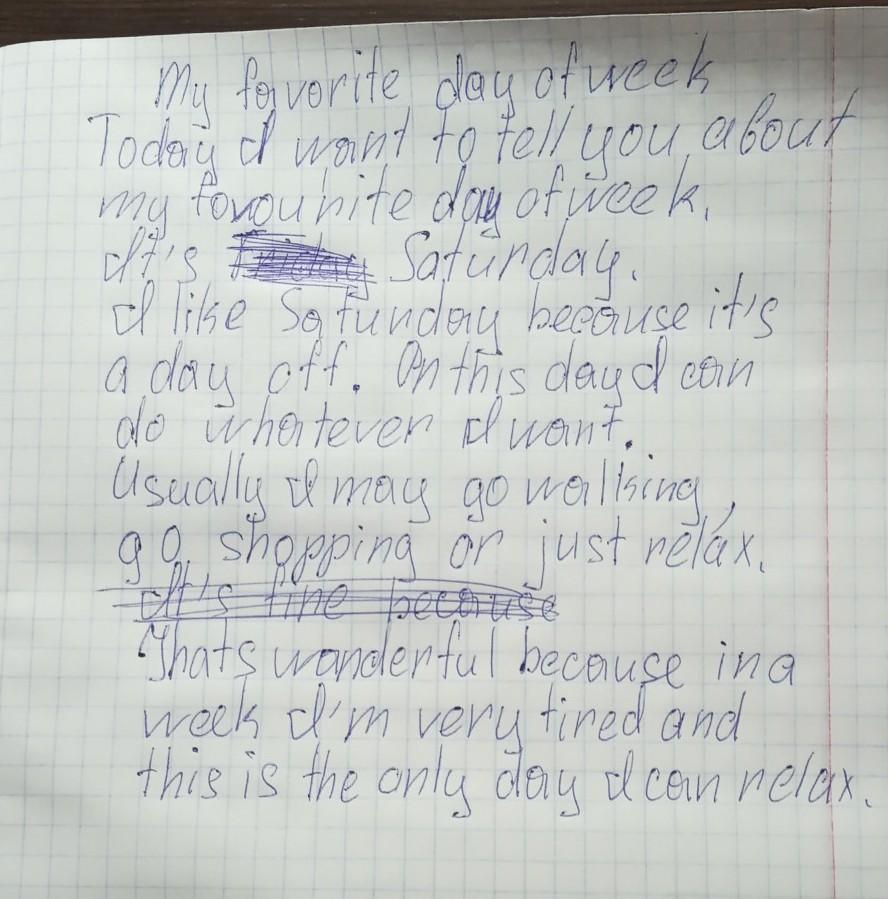 My favorite day of week
Today I want to tell you about
my favourite day of week.
It's Saturday.
I like Saturday because it's
a day off. On this day I can
do whatever I want.
Usually I may go walking,
go shopping or just relax.
It's fine because
Thats wonderful because in a
week I'm very tired and
this is the only day I can relax.